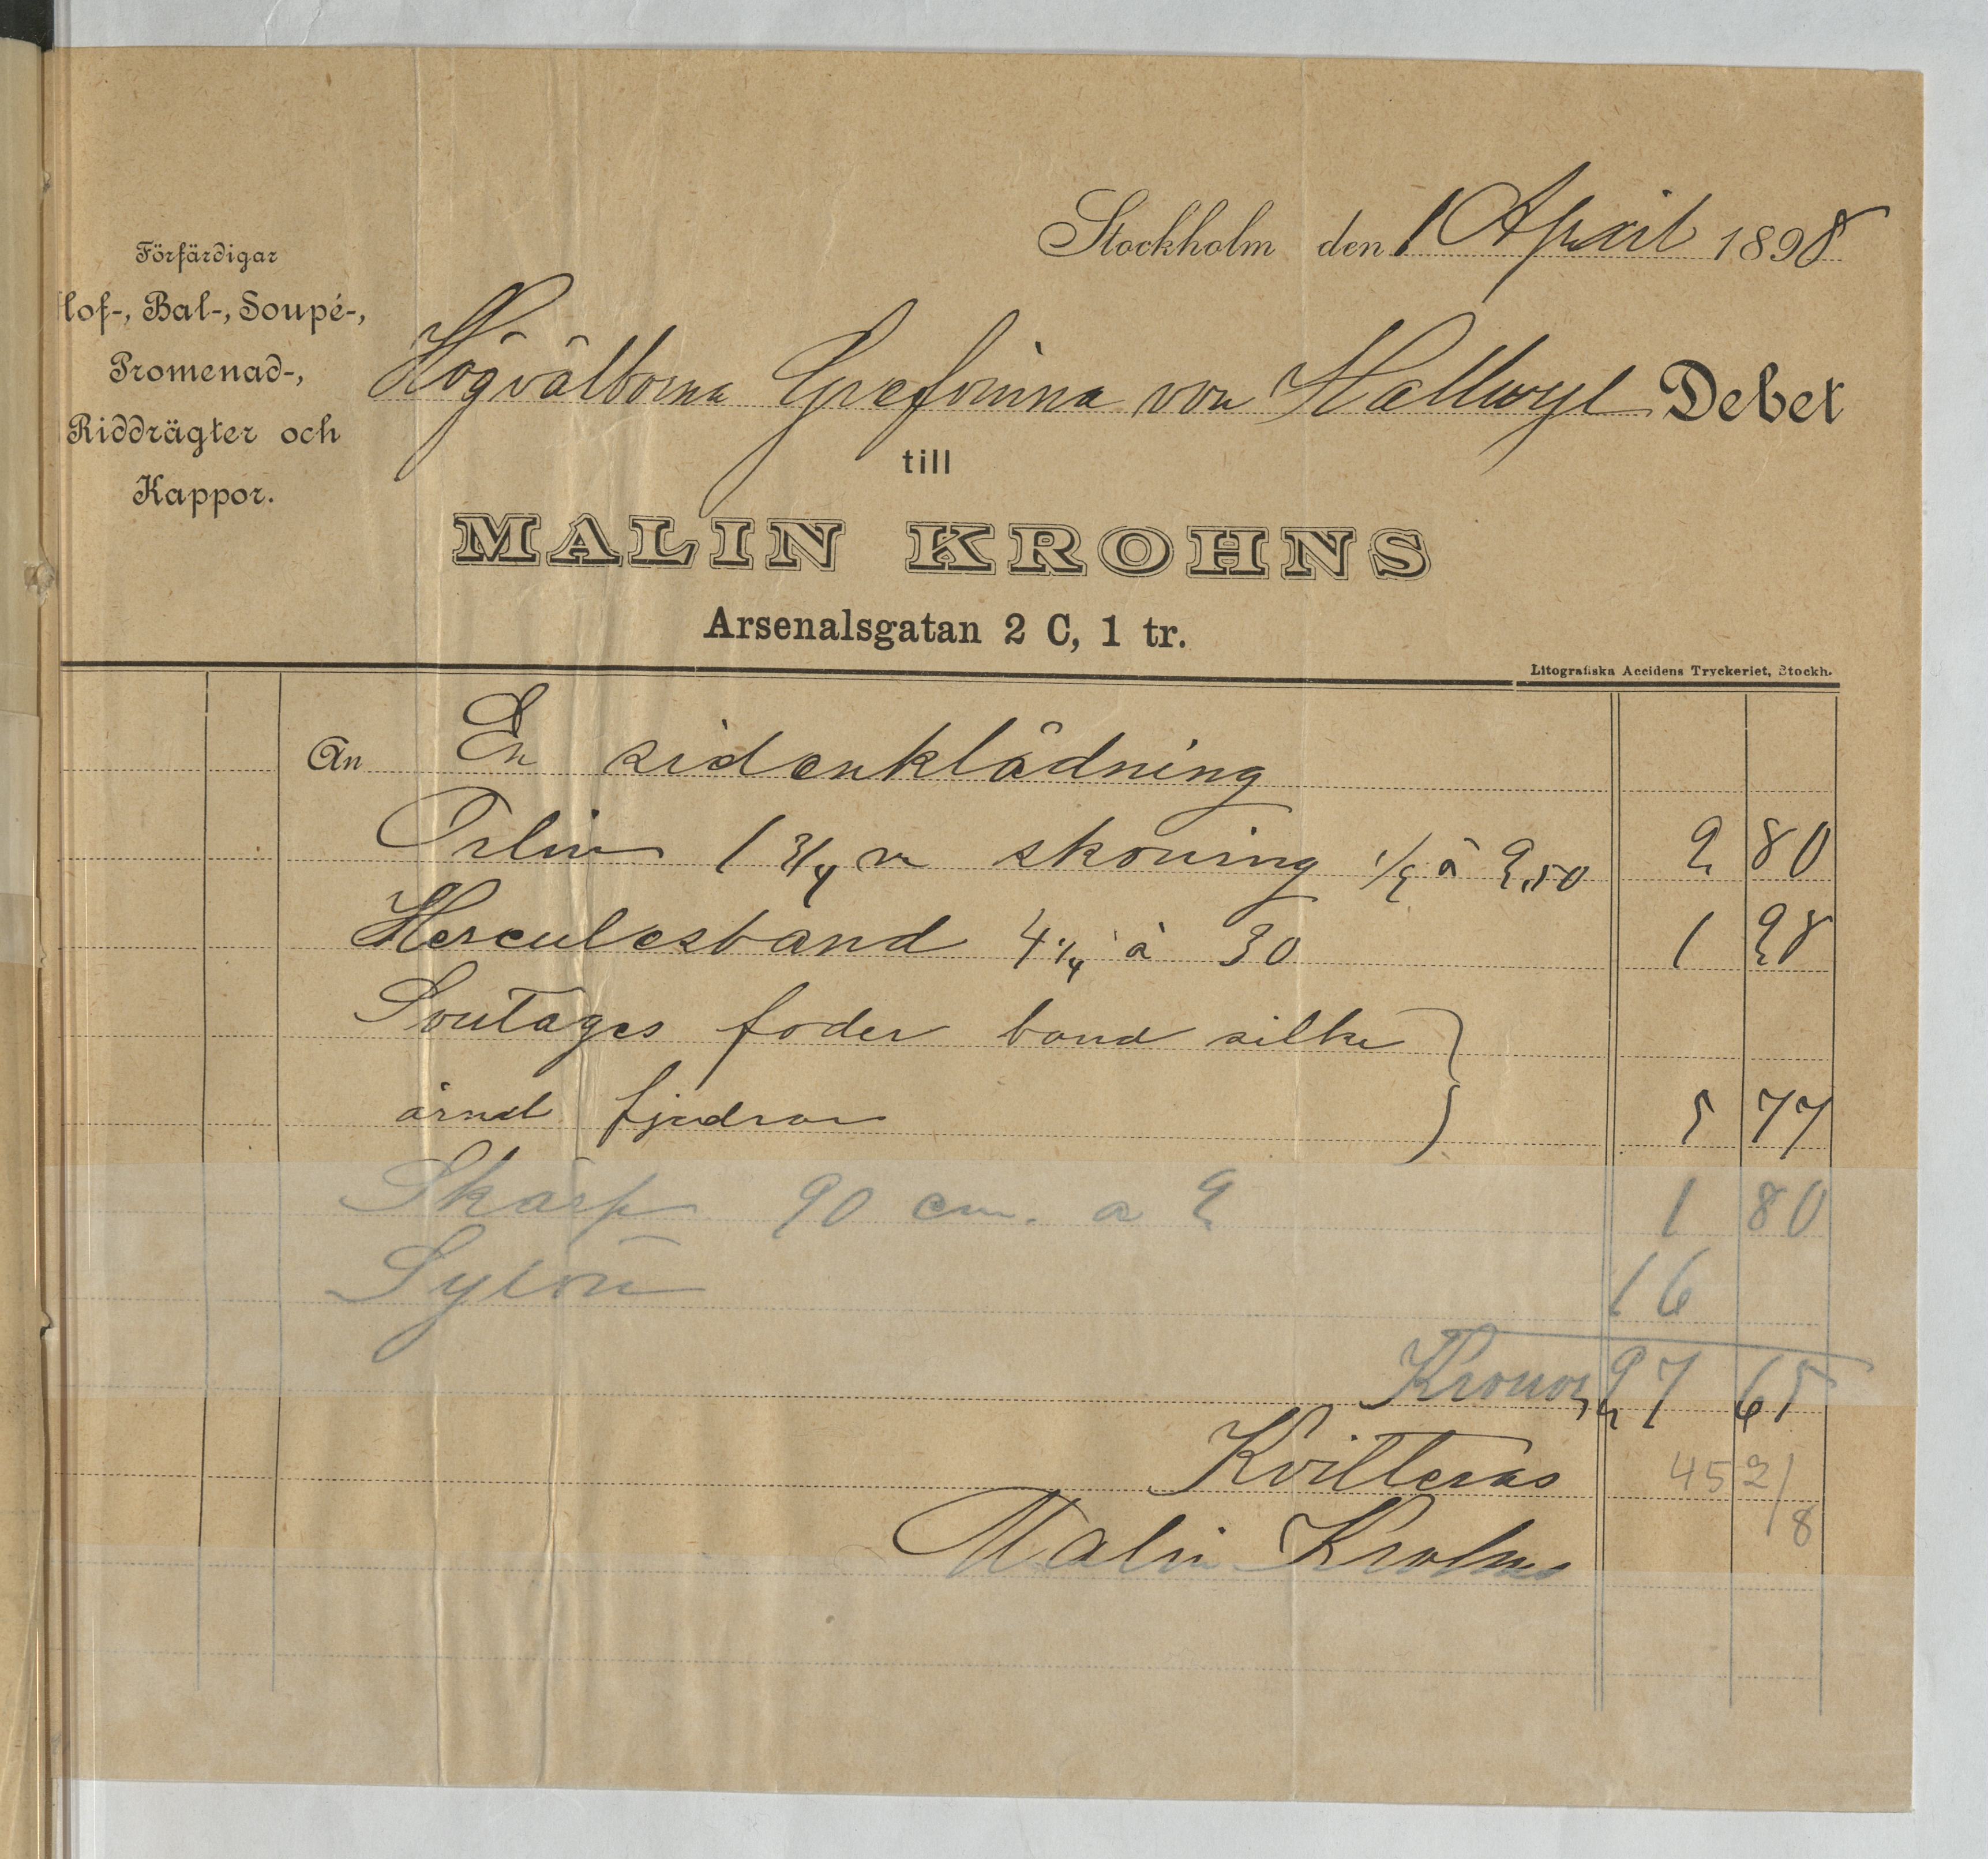 Stockholm den 1 April 1898
Förfärdigar
Hof-, Bal-, Soupé-,
Promenad-,
Riddrägter och
Kappor.
Högvälborna Grefvinna von Hallwyl Debet
till
MALIN KROHNS
Arsenalsgatan 2 C, 1 tr.
Litografiska Accidens Tryckeriet, Stockh.
An En sidenklädning
1 3/4 m skoning 1/2 à 2,50 2 80
Herculesband 4 1/4 à 30 1 28
Soutages foder band silke
ärmd fjedrar 5 77
Skärp 90 cm. a 2 1 80
Sylön 16
Kronor 27 65
Kvitteras
452/8
Malin Krohns